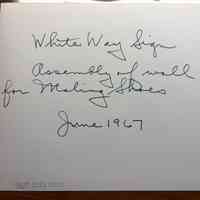 White Way Sign
Assembly of wall
for Maling Shoes
June 1967